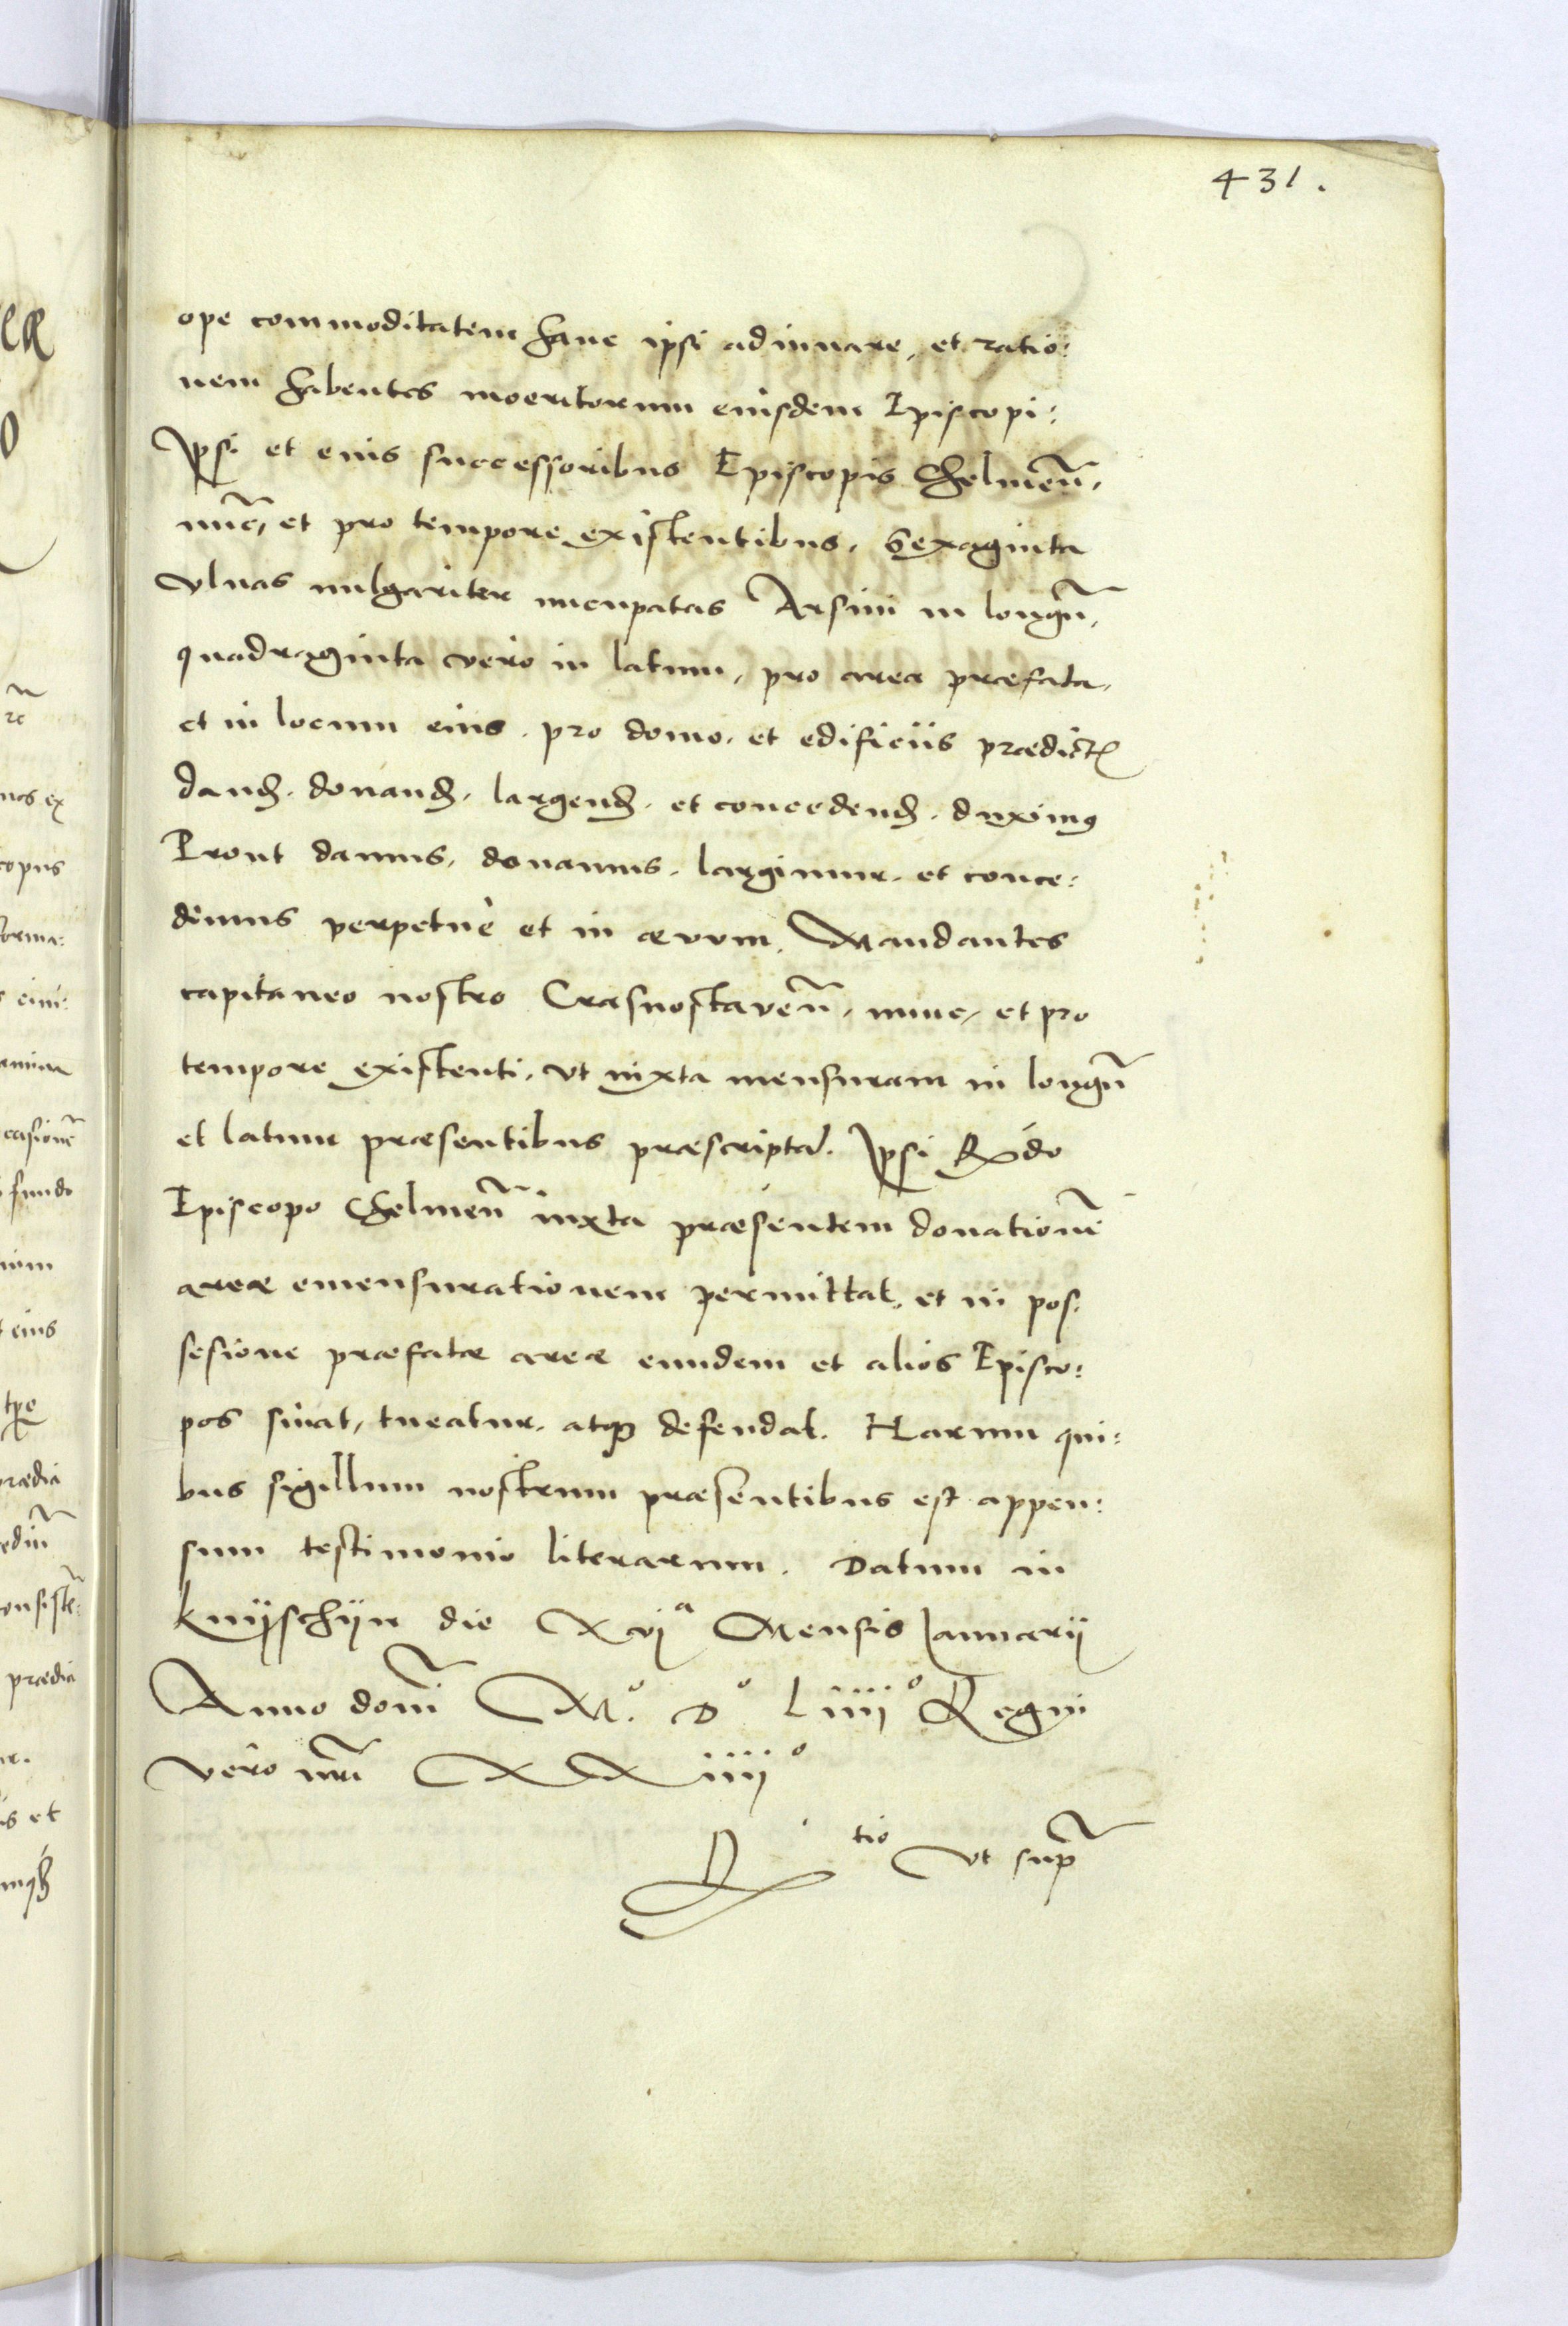 431.
ope commoditatem hanc ipsi adiuuare, et ratio:
nem habentes moeritorum eiusdem Episcopi:
Ipsi et eius successoribus Episcopis Chelmeñ,
nũc, et pro tempore existentibus, Sexaginta
vlnas uulgariter nucupatas Arsini in longũ,
quadraginta vero in latum, pro area præfata,
et in locum eius, pro domo, et edificiis prædict̃
dand̃, donand̃, largend̃, et concedend̃, duximꝰ
Prout damus, donamus, largimur, et conce:
dimus perpetue et in aevvm. Mandantes
capitaneo nostro Crasnostaveñ, nunc, et pro
tempore existenti, vt iuxta mensuram in longũ
et latum præsentibus præscripta. Ipsi R̃do
Episcopo Chelmeñ iuxta præsentem donationẽ
areæ emensurationem permittat, et in pos:
sesione præfatæ areæ eundem et alios Episco:
pos sinat, tueatur, atqꝫ defendat. Harum qui:
bus sigillum nostrum præsentibus est appen:
sum testimonio literarum. Datum in
knÿschÿn die Xvjᵃ Mensis Januarij
Anno dom̃ Mº. Dº Liiijº Regni
vero nr̃i XXiiijº
R tio vt sup̃